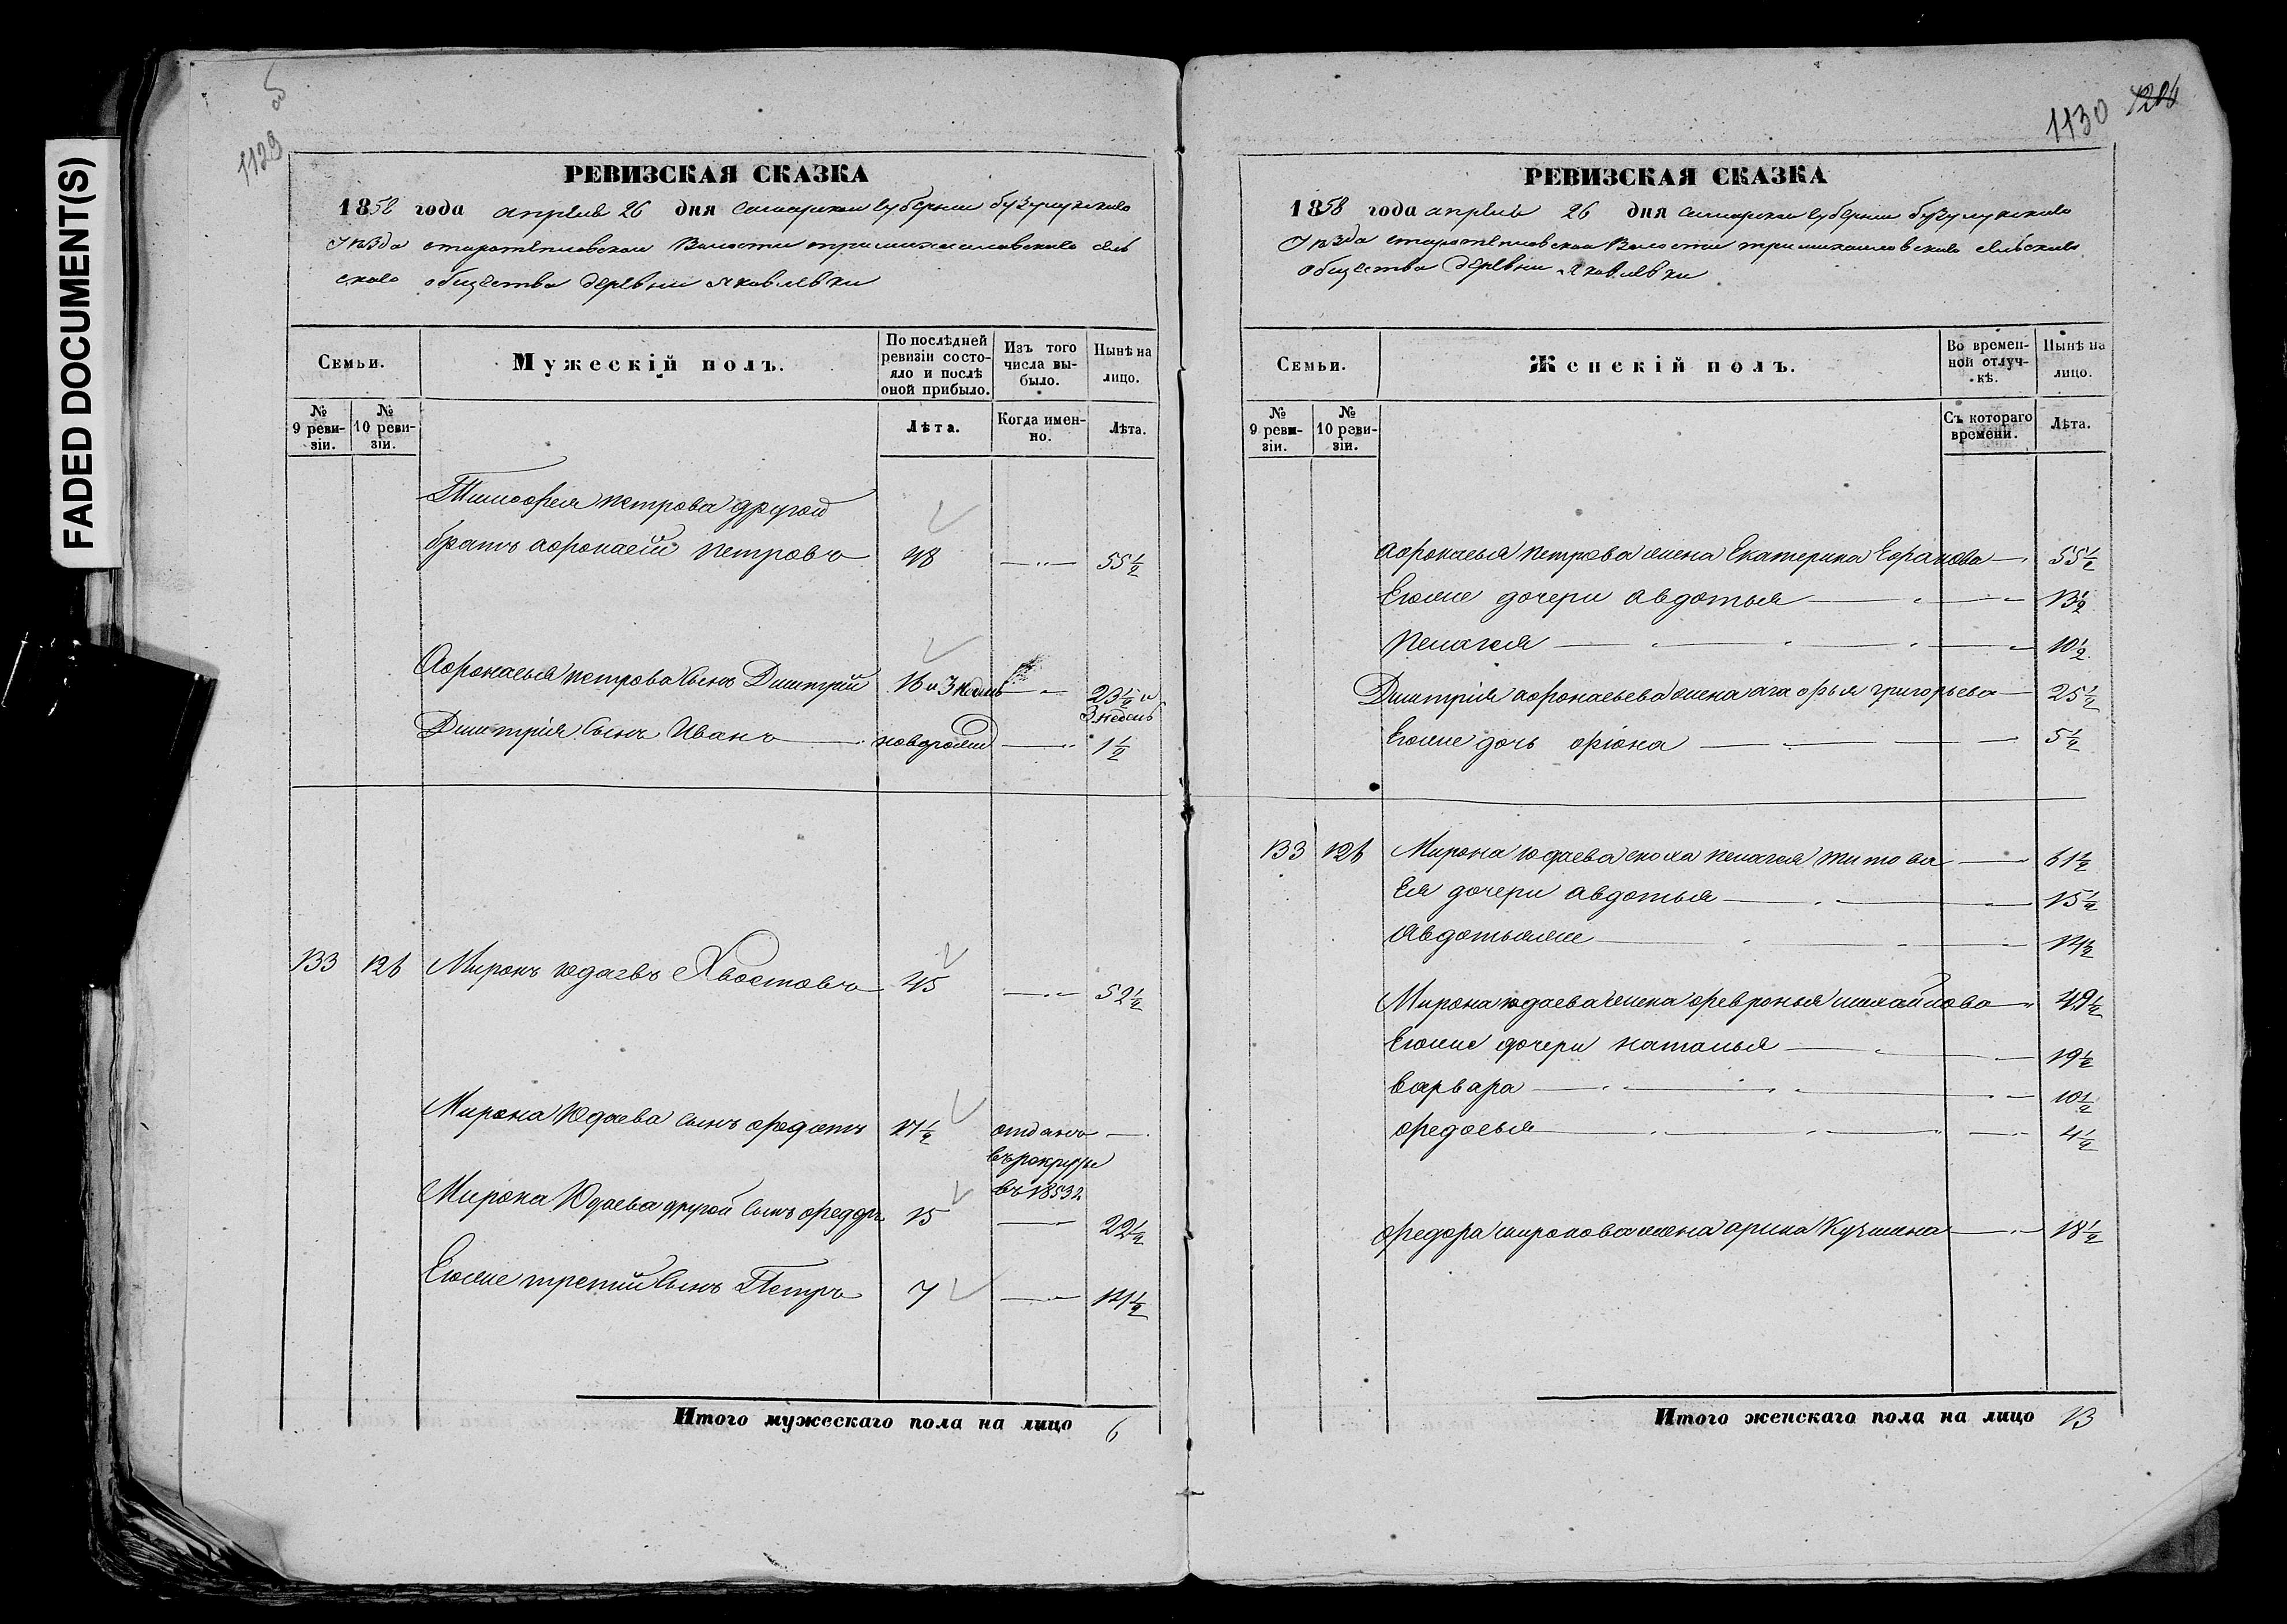 FADED DOCUMENT(S)
1129
РЕВИЗСКАЯ СКАЗКА
1858 года апреля 26 дня самарской губернии бузулукского
уѣзда старотепловской волости тримихайловского сель
ского общества деревни яковлевки
Семьи.
Мужескій полъ.
По послѣдней ревизіи состояло и послѣ оной прибыло.
Изъ того числа выбыло.
Нынѣ на лицо.
№ 9 ревизіи.
№ 10 ревизіи.
Лѣта.
Когда именно.
Лѣта.
Тимофея петрова другой
братъ афонасей петровъ 48 55½
Афонасья петрова сынъ Дмитрий 16 и 3 недель 23½ и
3 недель
Дмитрія сынъ Иванъ новорожд 1½
133 126 Миронъ юдаевъ Хвостовъ 45 52½
Мирона Юдаева сынъ федотъ 17½ отданъ
в рекруты
въ 1853 г
Мирона Юдаева другой сынъ федоръ 15 22½
Егоже третий сынъ Петръ 7 14½
Итого мужескаго пола на лицо 6
1130 1204
РЕВИЗСКАЯ СКАЗКА
1858 года апреля 26 дня самарской губернии бузулукского
уѣзда старотепловской волости тримихайловского сельского
общества деревни яковлевки
Семьи.
Женскій полъ.
Во временной отлучкѣ.
Нынѣ на лицо.
№ 9 ревизіи.
№ 10 ревизіи.
Съ котораго времени.
Лѣта.
афонасья петрова жена Екатерина 55½
Егоже дочери авдотья 13½
пелагея 10½
Дмитрія афонасьева жена агафья григорьева 25½
Егоже дочь фіона 5½
133 126 Мирона юдаева сноха пелагея титова 61½
Ея дочери авдотья 15½
Авдотьяже 14½
Мирона юдаева жена февронья михайлова 49½
Егоже дочери наталья 19½
варвара 10½
федосья 4½
федора миронова жена арина Кузмина 18½
Итого женскаго пола на лицо 13